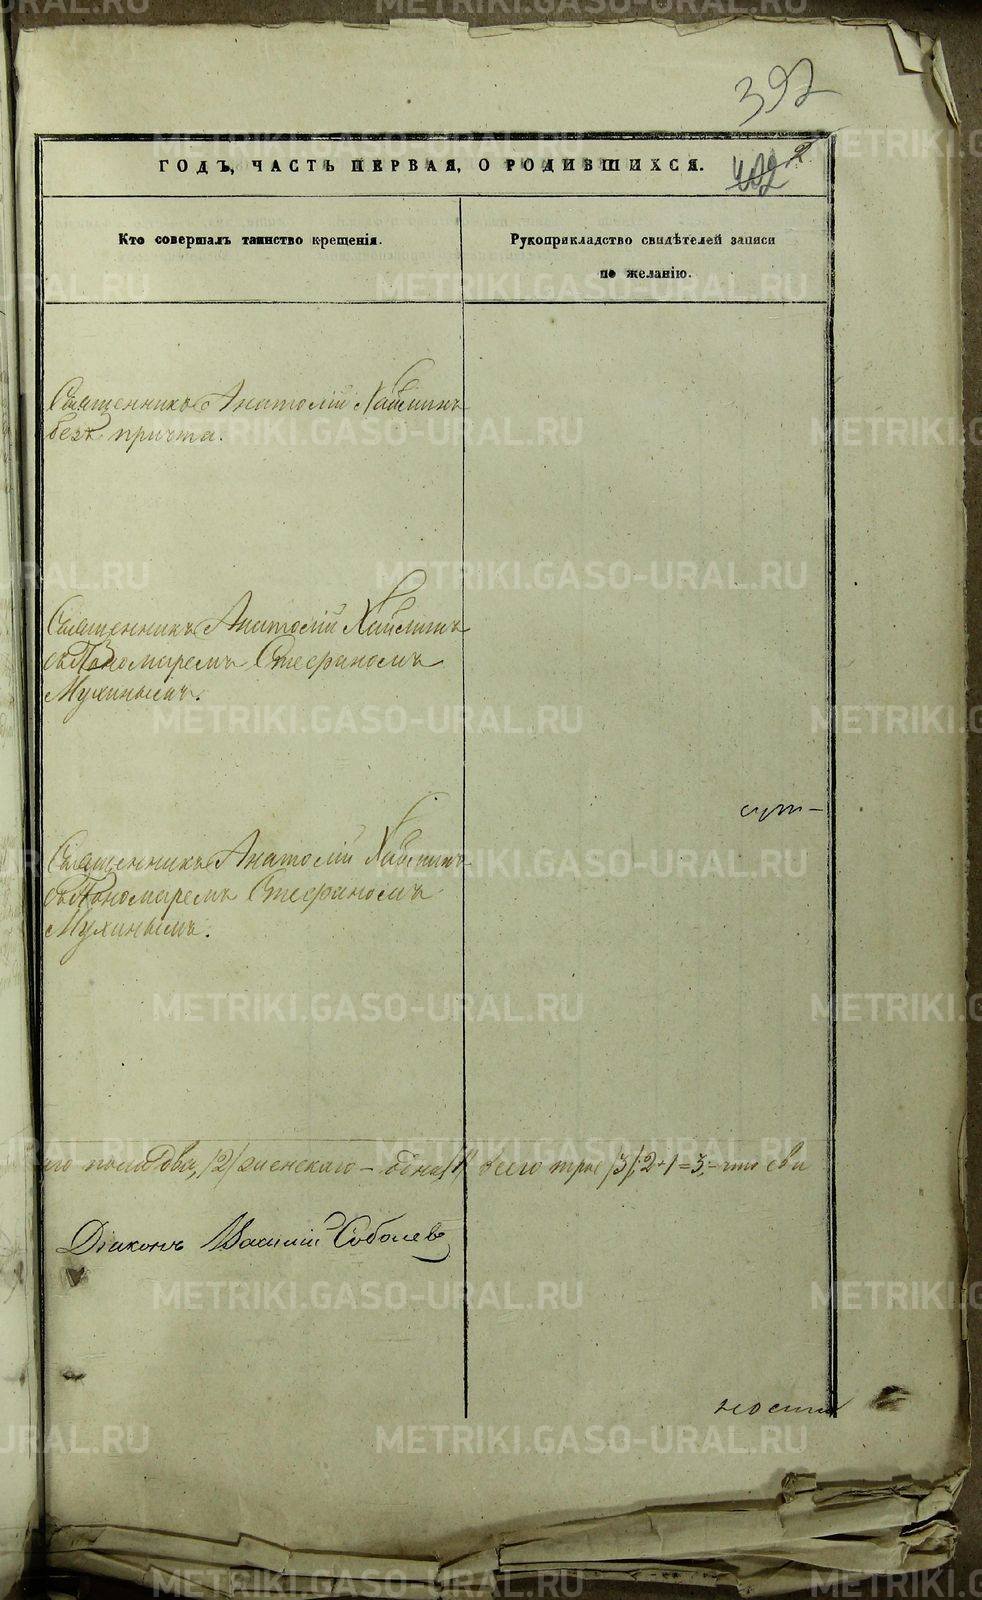 392
ГОДЪ, ЧАСТЬ ПЕРВАЯ, О РОДИВШИХСЯ.
Кто совершалъ таинство крещенія.
Рукоприкладство свидѣтелей записи
по желанію.
Священникъ Анатолій
безъ причта.
Священникъ Анатолій
съ Пономаремъ Стефаномъ
Мухинымъ.
Священникъ Анатолій
съ Пономаремъ Стефаномъ
Мухинымъ.
пола два, /2/ женскаго – одна /1/ всего трое /3/, 2+1=3,
Діаконъ Василій Соболевъ
ности
METRIKI.GASO-URAL.RU